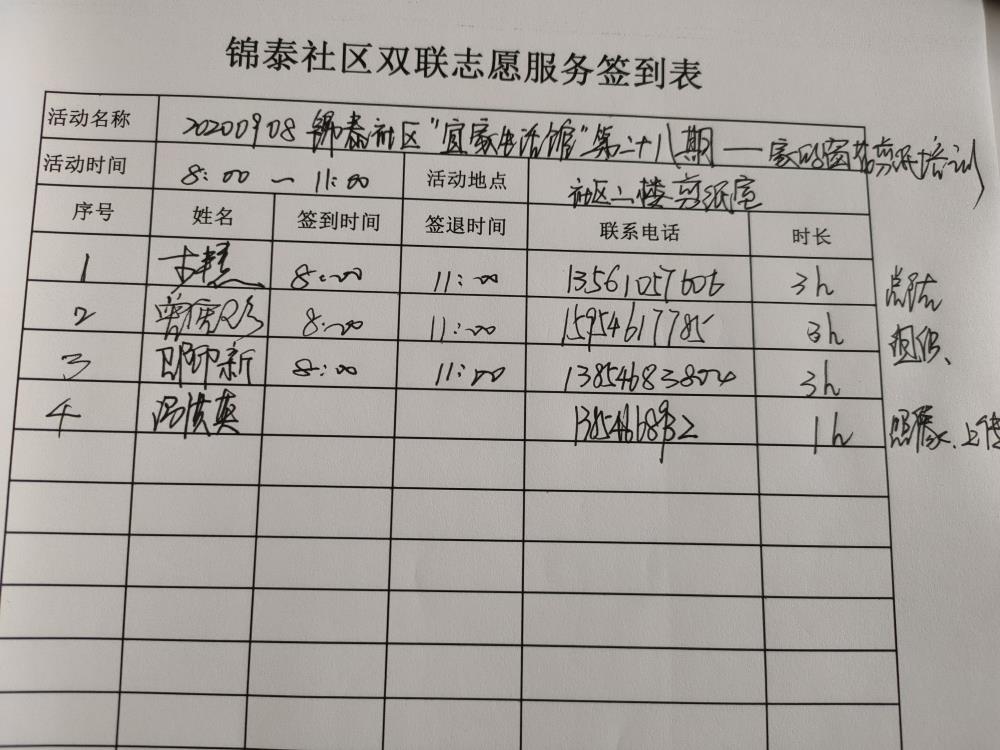 锦泰社区双联志愿服务签到表
活动名称 20200908 锦泰社区"宜家生活馆"第二十八期—家的窗花剪纸培训
活动时间 8:00—11:00 活动地点 社区二楼剪纸室
序号 姓名 签到时间 签退时间 联系电话 时长
1 8:00 11:00 13561057606 3h
2 8:00 11:00 15954617785 3h 组织、
3 新 8:00 11:00 13854683804 3h
4 英 1h 照像、上传